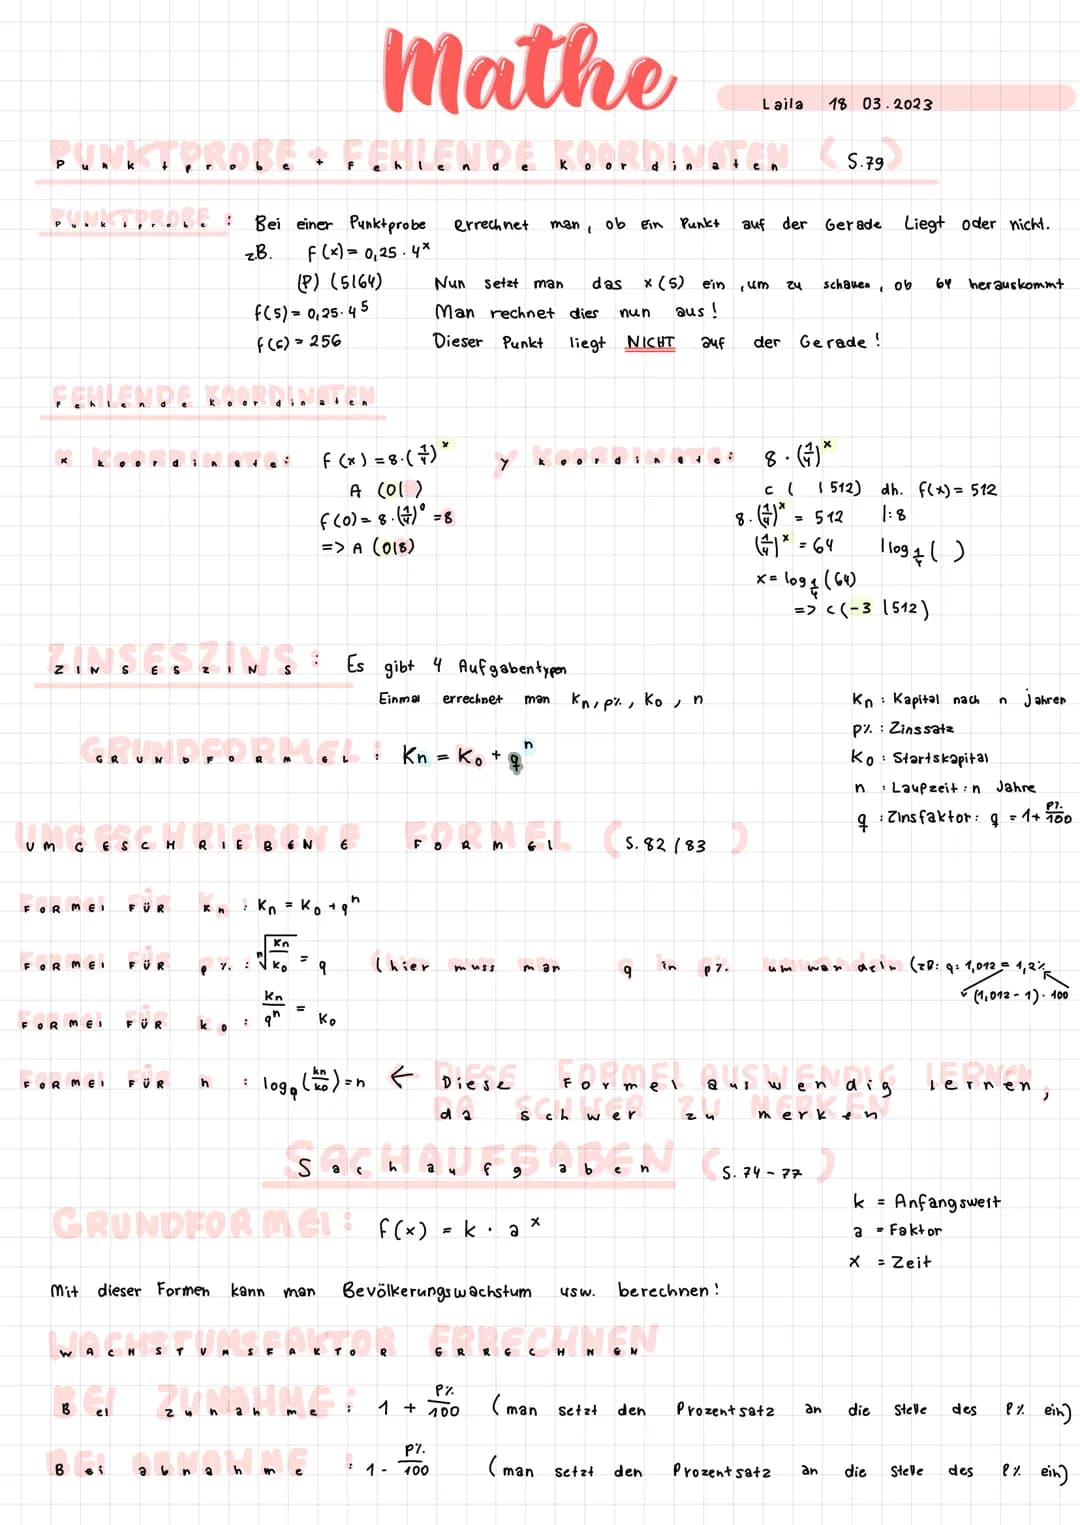 Mathe
Laila 18 03.2023
PUNKTPROBE + FEHLENDE KOORDINATEN (S.79)
PUNKTPROBE: Bei einer Punktprobe errechnet man, ob ein Punkt auf der Gerade Liegt oder nicht.
zB. f(x) = 0,25 · 4^x
(P) (5|64) Nun setzt man das x (5) ein, um zu schauen, ob 64 herauskommt
f(5) = 0,25 · 4^5 Man rechnet dies nun aus!
f(5) = 256 Dieser Punkt liegt NICHT auf der Gerade!
FEHLENDE KOORDINATEN
x koordinate: f(x) = 8·(1/4)^x y koordinate: 8 · (1/4)^x
A (0| ) c ( | 512) dh. f(x) = 512
f(0) = 8·(1/4)^0 = 8 8·(1/4)^x = 512 |:8
=> A (0|8) (1/4)^x = 64 | log 1/4 ( )
x = log 1/4 (64)
=> c (-3 | 512)
ZINSESZINS: Es gibt 4 Aufgabentypen
Einmal errechnet man Kn, p%, Ko, n
Kn: Kapital nach n jahren
p%: Zinssatz
GRUNDFORMEL: Kn = Ko + q^n
Ko: Startskapital
n: Laufzeit: n Jahre
q: Zinsfaktor: q = 1 + p%/100
UMGESCHRIEBENE FORMEL (S. 82/83)
FORMEL FÜR Kn: Kn = Ko + q^n
FORMEL FÜR p%: n√(Kn/Ko) = q (hier muss man q in p% umwandeln (zB: q: 1,012 = 1,2%
(1,012 - 1) · 100
FORMEL FÜR ko: Kn/q^n = Ko
FORMEL FÜR n: log q (kn/ko) = n ← Diese Formel auswendig lernen,
da schwer zu merken
Sachaufgaben (S. 74 - 77)
k = Anfangswert
GRUNDFORMEL: f(x) = k · a^x
a = Faktor
x = Zeit
Mit dieser Formen kann man Bevölkerungswachstum usw. berechnen!
WACHSTUMSFAKTOR ERRECHNEN
Bei zunahme: 1 + p%/100 (man setzt den Prozentsatz an die Stelle des P% ein)
Bei abnahme: 1 - p%/100 (man setzt den Prozentsatz an die Stelle des P% ein)